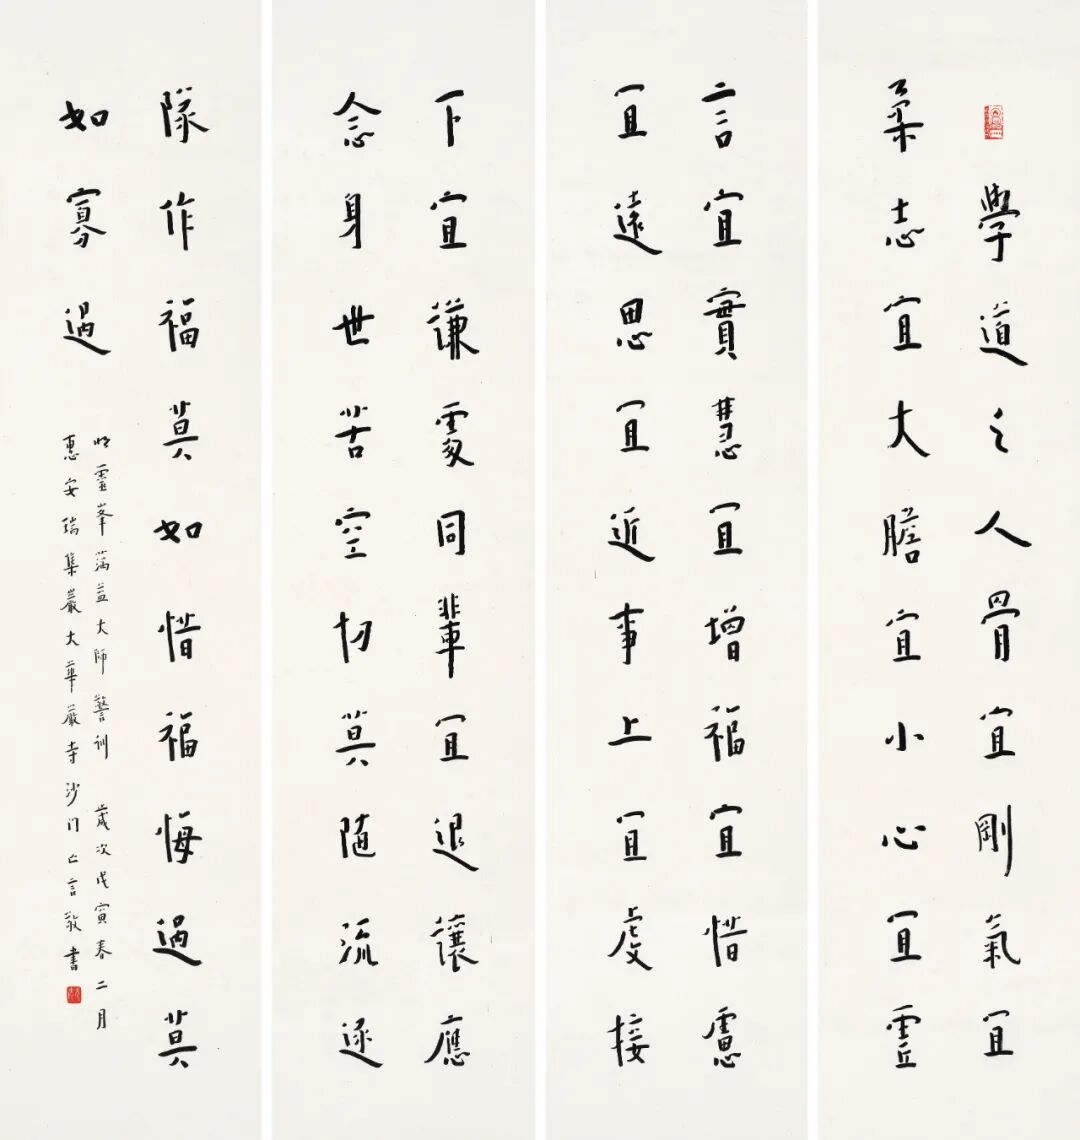 學道之人骨宜剛氣宜
柔志宜大膽宜小心宜虛
言宜實慧宜增福宜惜慮
宜遠思宜近事上宜虔接
下宜謙處同輩宜退讓應
念身世苦空切莫隨流逐
隊作福莫如惜福悔過莫
如寡過
明靈峯蕅益大師警训 歲次戊寅春二月
惠安瑞集巖大華嚴寺沙门亡言敬書